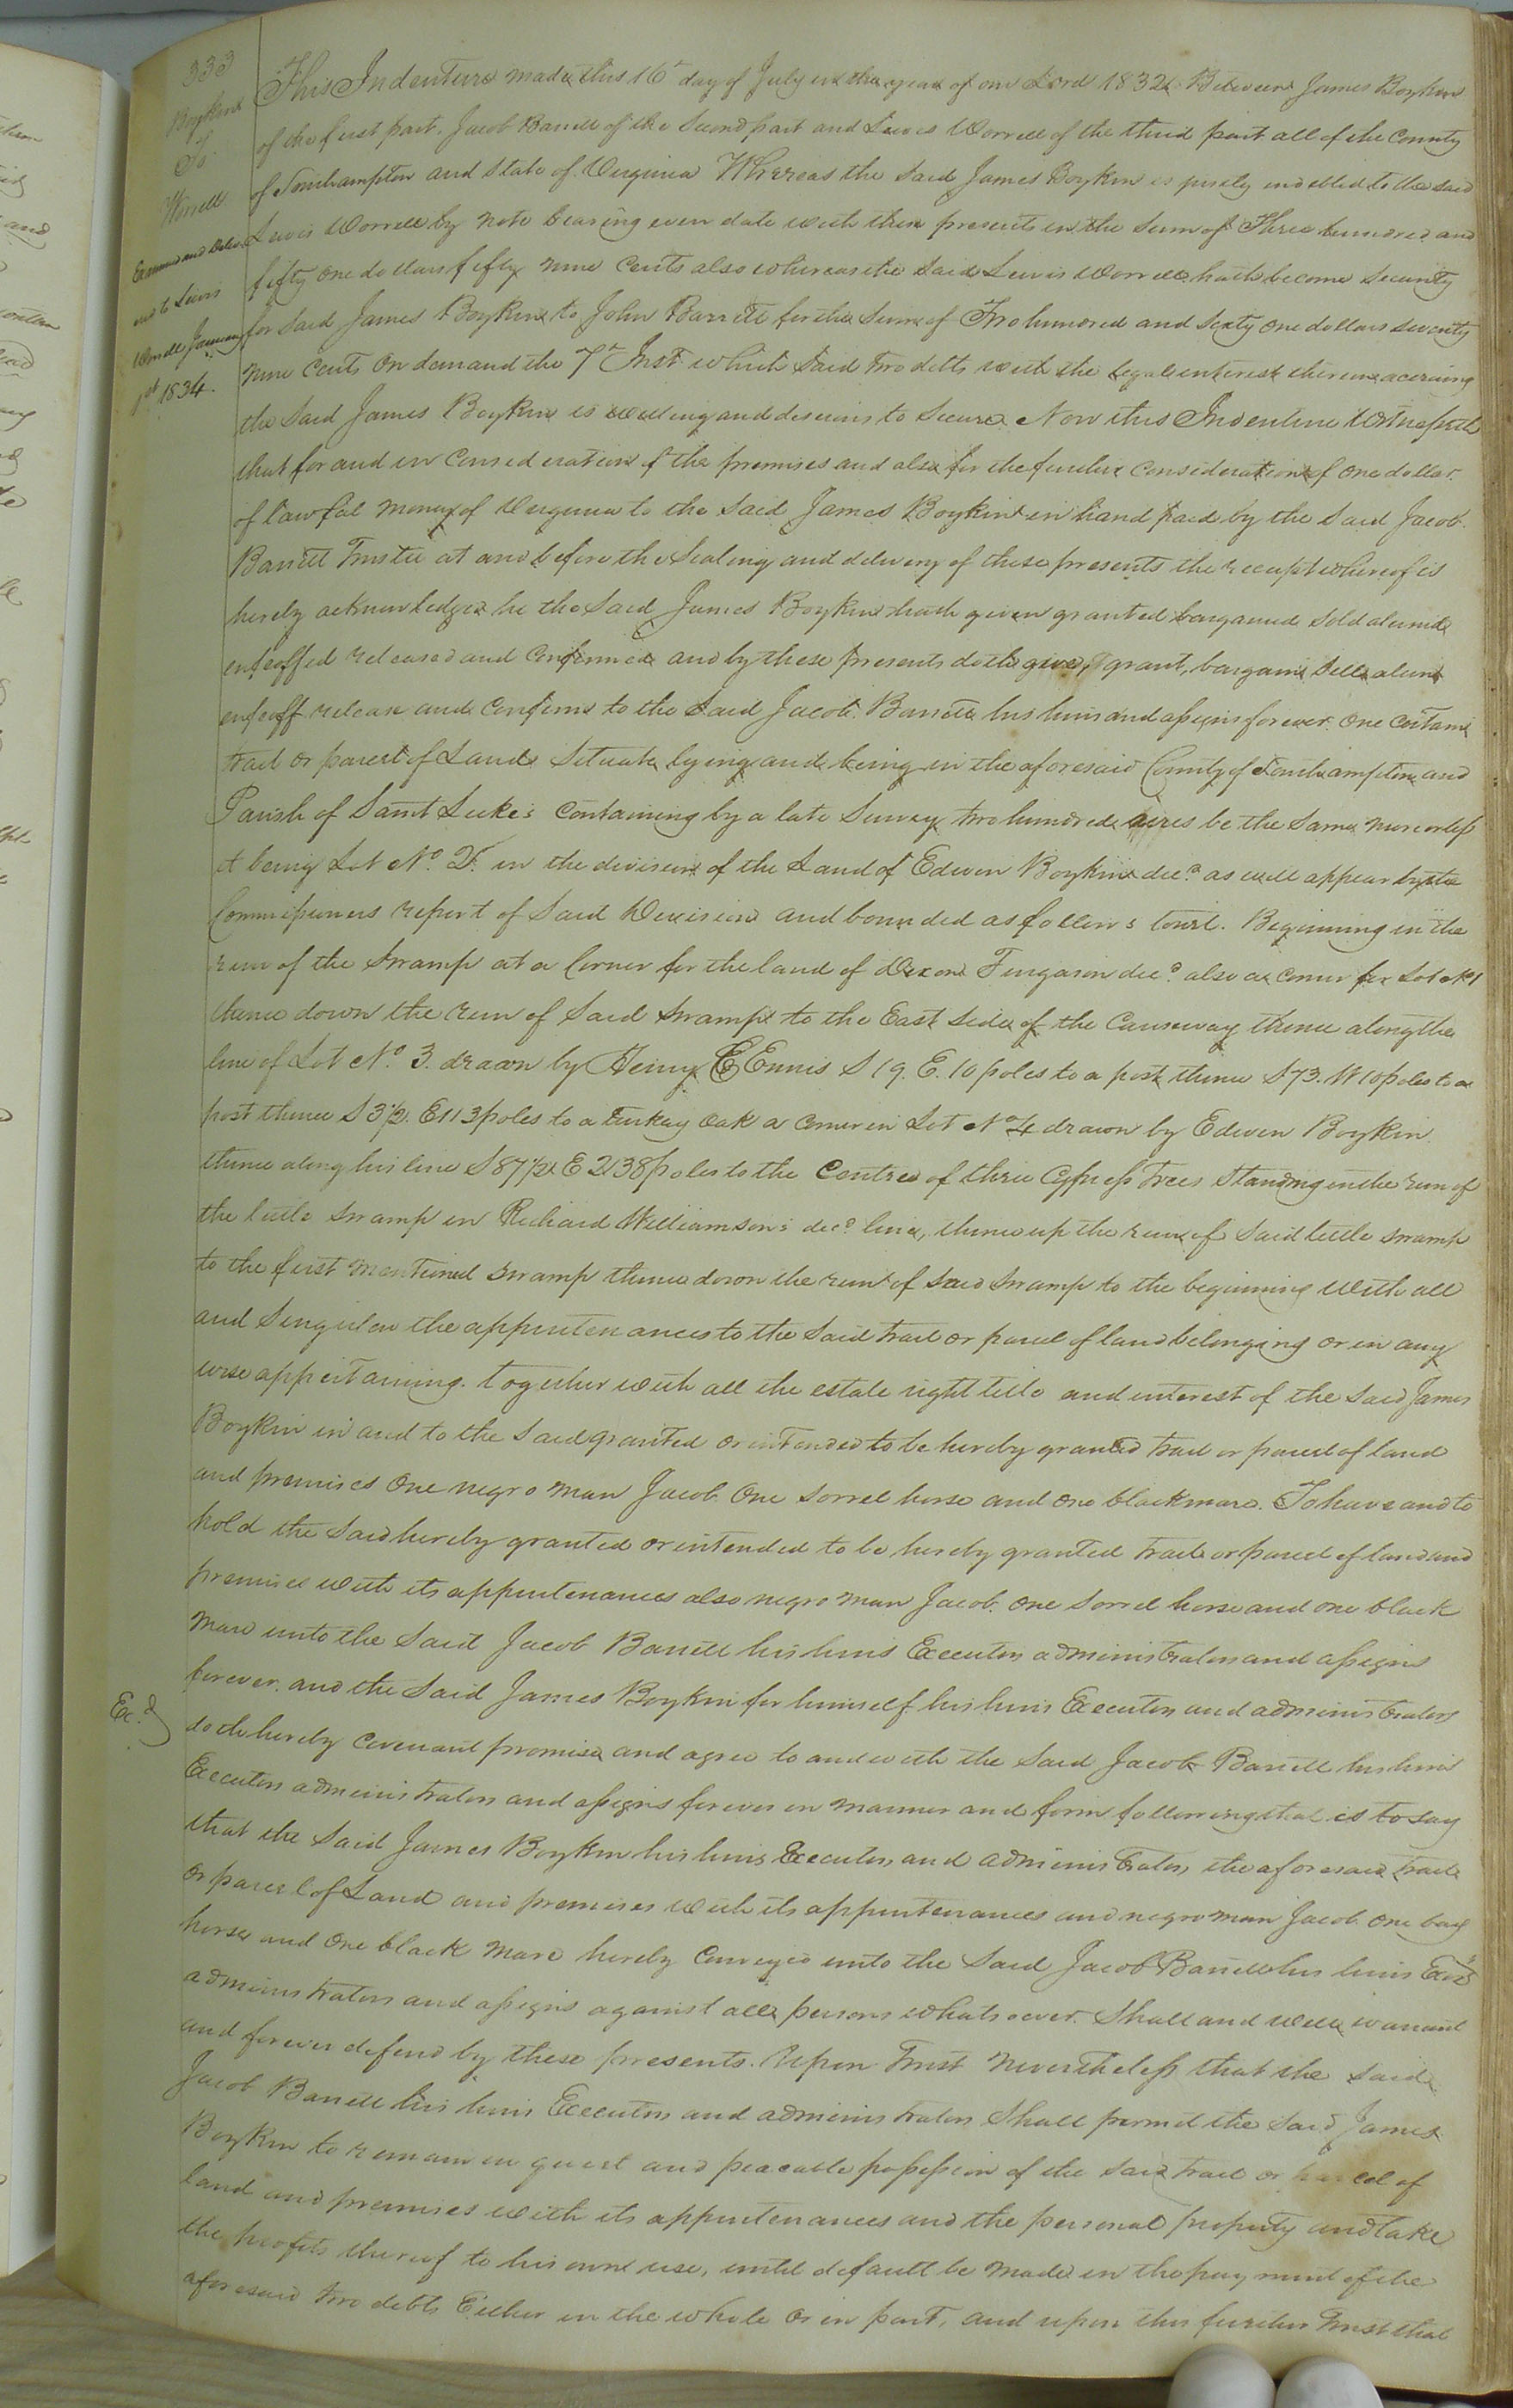 333
Boykin
To
Worrell
Examined and Deliv
ered to Lewis
Worrell January
1st 1834.
This Indenture made this 16th day of July in the year of our Lord 1832. Between James Boykin
of the first part. Jacob Barrett of the Second part and Lewis Worrell of the third part all of the County
of Southampton and State of Virginia Whereas the said James Boykin is justly indebted to the said
Lewis Worrell by note bearing even date with these presents in the sum of Three hundred and
fifty one dollars fifty nine Cents also whereas the said Lewis Worrell hath become security
for said James Boykin to John Barrett for the sum of Two hundred and sixty one dollars seventy
nine Cents on demand the 7th Inst which said two debts with the legal interest thereon accruing
the said James Boykin is willing and desirous to secure. Now this Indenture Witnesseth
that for and in consideration of the premises and also for the further consideration of one dollar.
of lawful money of Virginia to the said James Boykin in hand paid by the said Jacob.
Barrett Trustee at and before the sealing and delivery of these presents the receipt whereof is
hereby acknowledged he the said James Boykin hath given granted bargained sold aliened
enfeoffed released and confirmed and by these presents doth give, grant, bargain sell alien
enfeoff release and confirm to the said Jacob. Barrett his heirs and assigns forever. one certain
tract or parcel of Land Situate lying and being in the aforesaid County of Southampton and
Parish of Saint Luke's containing by a late Survey two hundred acres be the same more or less
it being Lot No. 2. in the division of the Land of Edwin Boykin decd. as will appear by the
Commissioners report of said Division and bounded as follows towit. Beginning in the
run of the Swamp at a Corner for the land of Dixon Turgason decd. also a corner for Lot No 1
thence down the run of said Swamp to the East side of the causeway thence along the
line of Lot No. 3. drawn by Henry E Ennis S 19. E. 10 poles to a post thence S 73. W 10 poles to a
post thence S 3 1/2. E 113 poles to a turkey oak a corner in Lot No 4 drawn by Edwin Boykin.
thence along his line S 87 1/2 E 238 poles to the Centre of three Cypress Trees standing in the run of
the little swamp in Richard Williamson's decd. line, thence up the run of said little swamp
to the first mentioned swamp thence down the run of said swamp to the beginning with all
and Singular the appurtenances to the said tract or parcel of land belonging or in any
wise appertaining. together with all the estate right title and interest of the said James
Boykin in and to the said granted or intended to be hereby granted tract or parcel of land
and premises One negro man Jacob One sorrel horse and one black mare. To have and to
hold the said hereby granted or intended to be hereby granted tract or parcel of land and
premises with its appurtenances also negro man Jacob. one sorrel horse and one black
mare unto the said Jacob Barrett his heirs Executors administrators and assigns
forever. and the said James Boykin for himself his heirs Executors and administrators
Ex.d
doth hereby covenant promise and agree to and with the said Jacob Barrett his heirs
Executors administrators and assigns forever in manner and form following that is to say
that the said James Boykin his heirs Executors and administrators the aforesaid tract
or parcel of Land and premises with its appurtenances and negro man Jacob one bay
horse and one black mare hereby conveyed unto the said Jacob Barrett his heirs Exors
administrators and assigns against all persons whatsoever. Shall and will warrant
and forever defend by these presents. Upon Trust nevertheless that the said
Jacob Barrett his heirs Executors and administrators shall permit the said James
Boykin to remain in quiet and peaceable possession of the said tract or parcel of
land and premises with its appurtenances and the personal property and take
the profits thereof to his own use, until default be made in the payment of the
aforesaid two debts Either in the whole or in part, and upon this further Trust that